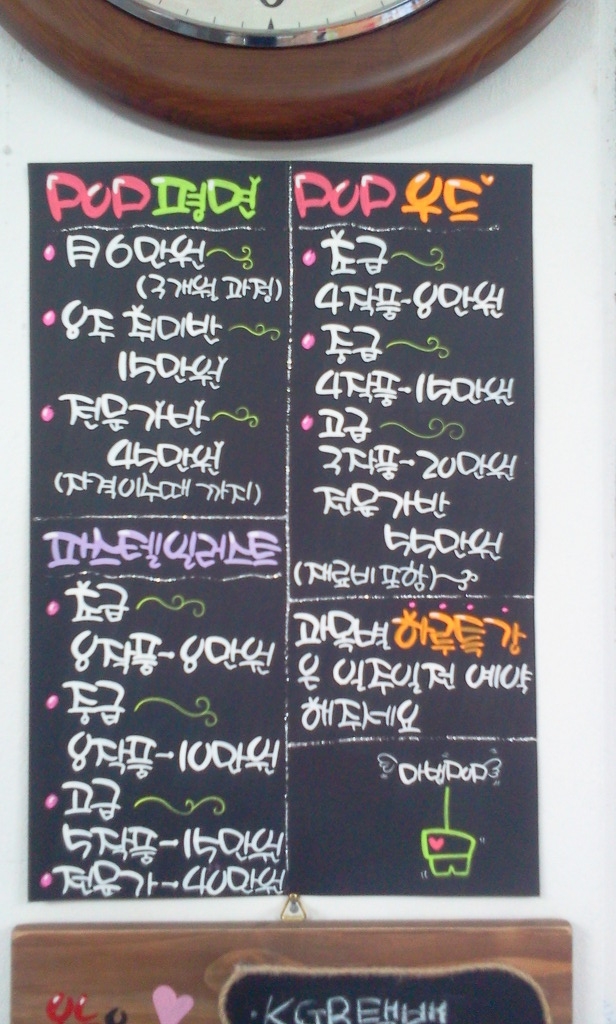 POP 평면
月6만원
(3개월 과정)
8주 취미반
15만원
전문가반
45만원
(자격이수때 까지)
파스텔일러스트
초급
8작품-8만원
중급
8작품-10만원
고급
5작품-15만원
전문가-40만원
POP 우드
초급
4작품-8만원
중급
4작품-15만원
고급
3작품-20만원
전문가반
55만원
(재료비 포함)
과목별 하루특강
은 일주일전 예약
해주세요
POP